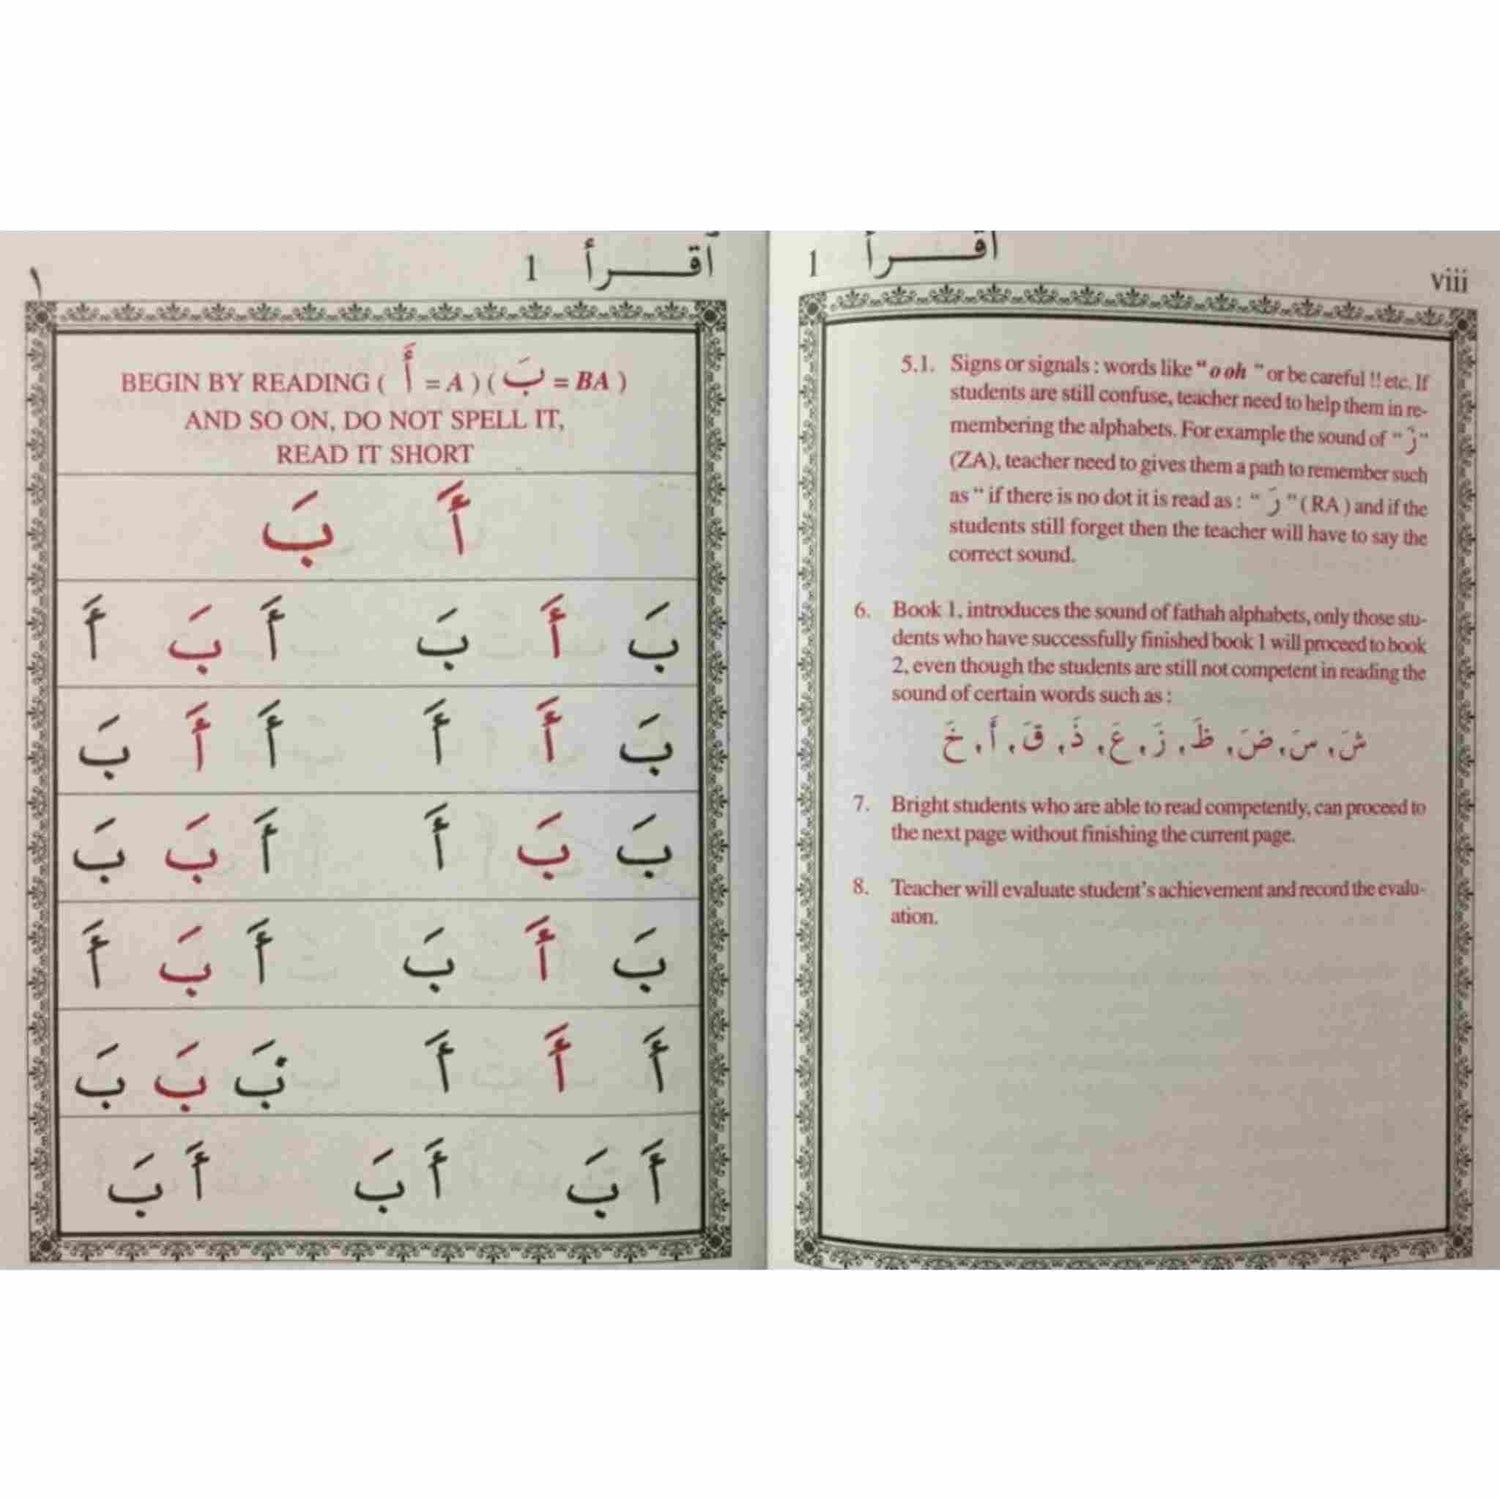 viii
اقرأ 1
5.1. Signs or signals : words like “ o oh ” or be careful !! etc. If
students are still confuse, teacher need to help them in re-
membering the alphabets. For example the sound of “ زَ ”
(ZA), teacher need to gives them a path to remember such
as “ if there is no dot it is read as : “ رَ ” ( RA ) and if the
students still forget then the teacher will have to say the
correct sound.
6. Book 1, introduces the sound of fathah alphabets, only those stu-
dents who have successfully finished book 1 will proceed to book
2, even though the students are still not competent in reading the
sound of certain words such as :
شَ، سَ، ضَ، ظَ، زَ، عَ، ذَ، قَ، أَ، خَ
7. Bright students who are able to read competently, can proceed to
the next page without finishing the current page.
8. Teacher will evaluate student’s achievement and record the evalu-
ation.
اقرأ 1
١
BEGIN BY READING ( أَ = A ) ( بَ = BA )
AND SO ON, DO NOT SPELL IT,
READ IT SHORT
أَ بَ
بَ أَ بَ أَ بَ أَ
بَ أَ أَ أَ أَ بَ
بَ بَ أَ أَ بَ بَ
بَ أَ بَ أَ بَ أَ
أَ أَ أَ بَ بَ بَ
أَ بَ أَ بَ أَ بَ